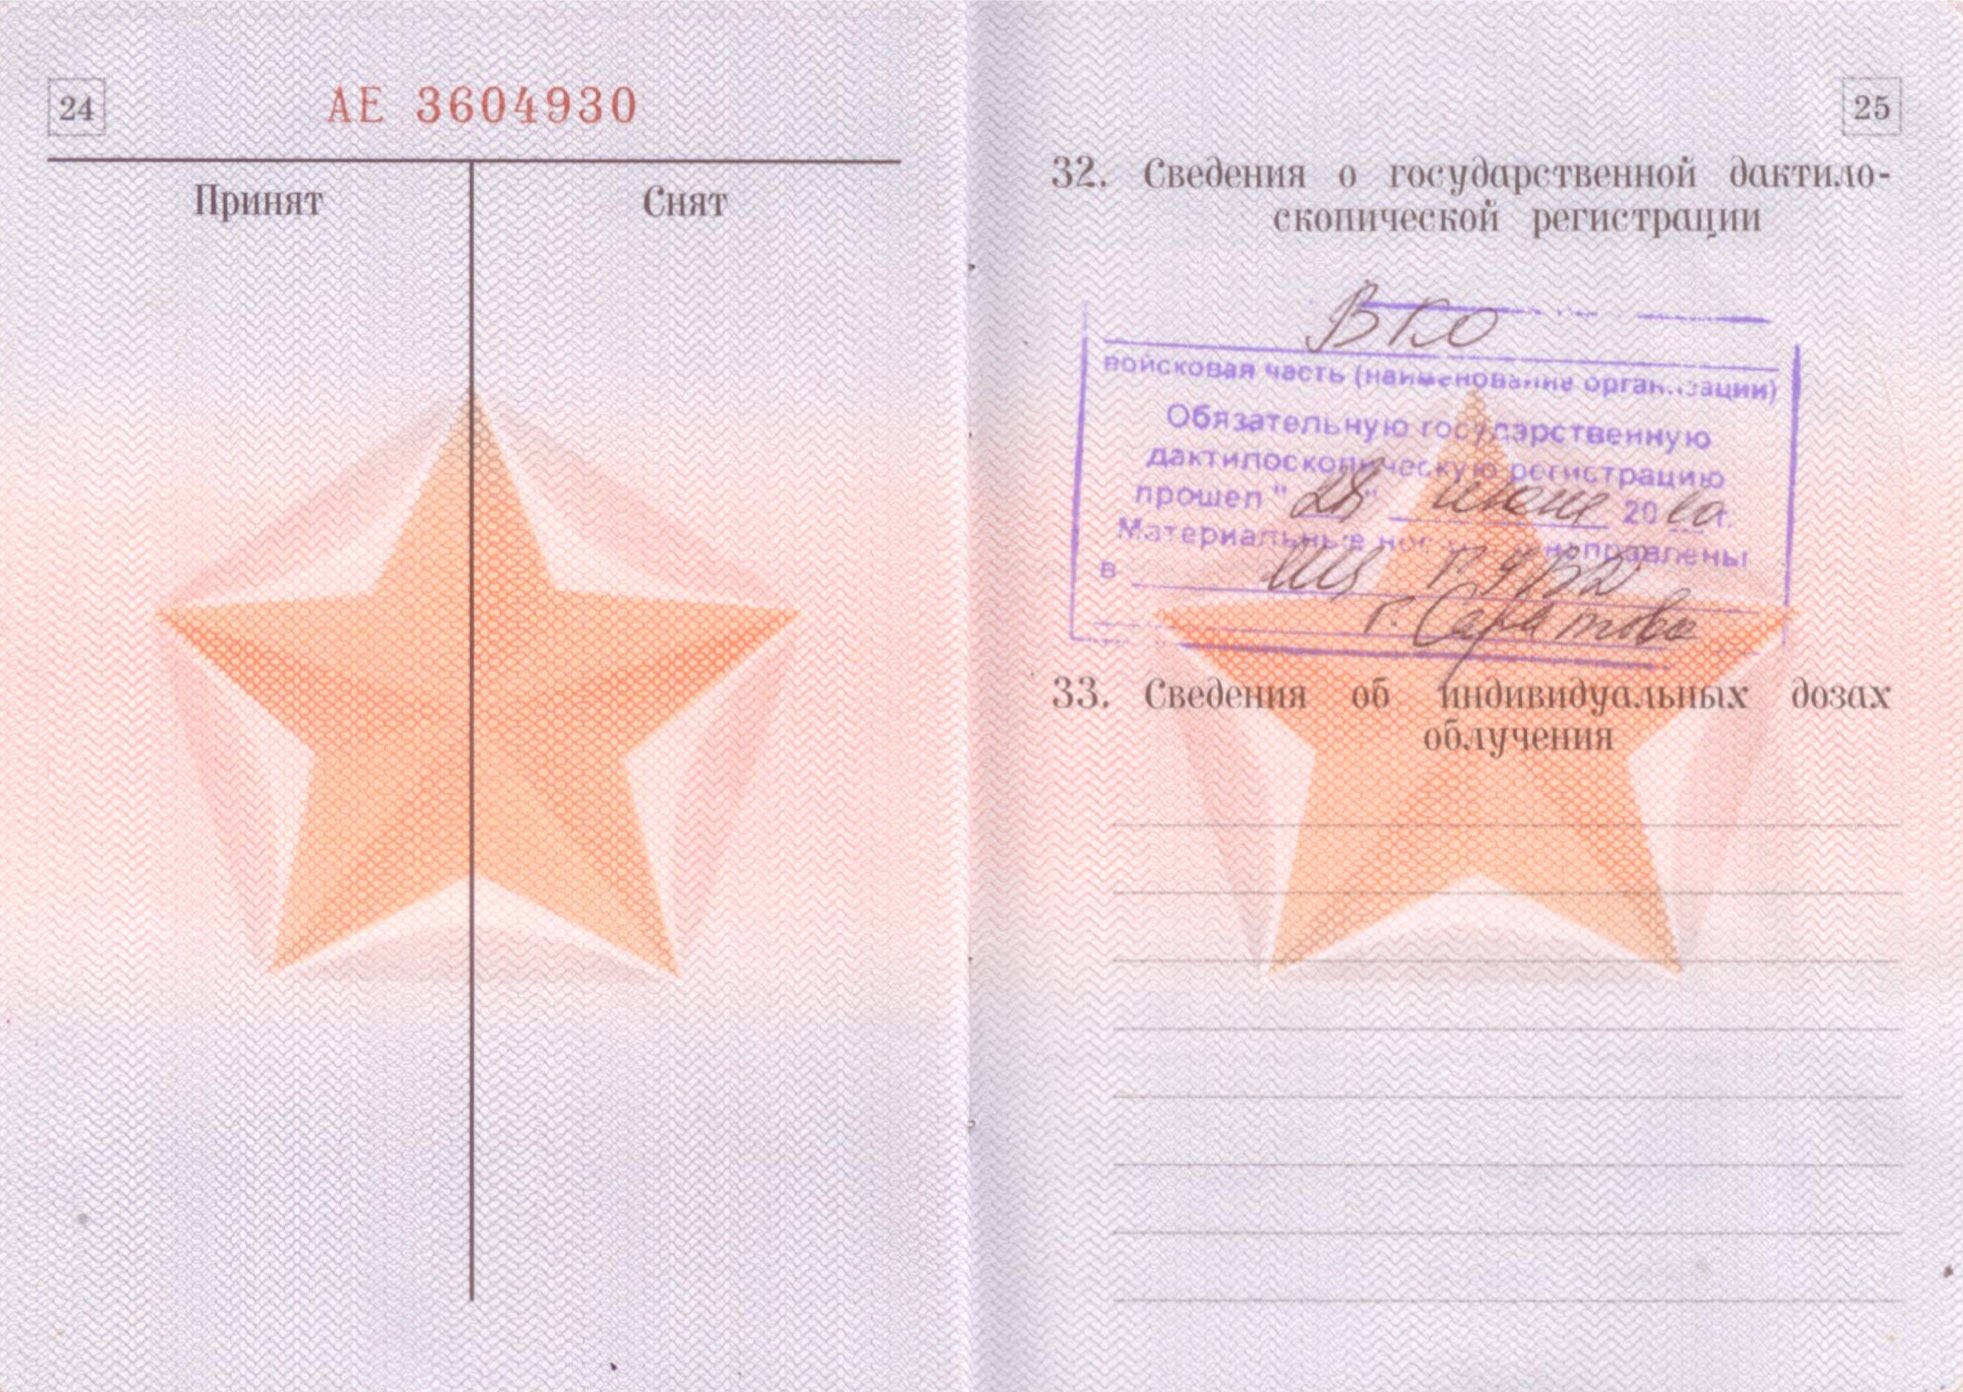 24
АЕ 3604930
Принят
Снят
25
32. Сведения о государственной дактило-
скопической регистрации
ВКО
войсковая часть (наименование организации)
Обязательную государственную
дактилоскопическую регистрацию
прошел "28" июня 2010 г.
Материальные носители направлены
в ИЦ ГУВД
г. Саратова
33. Сведения об индивидуальных дозах
облучения